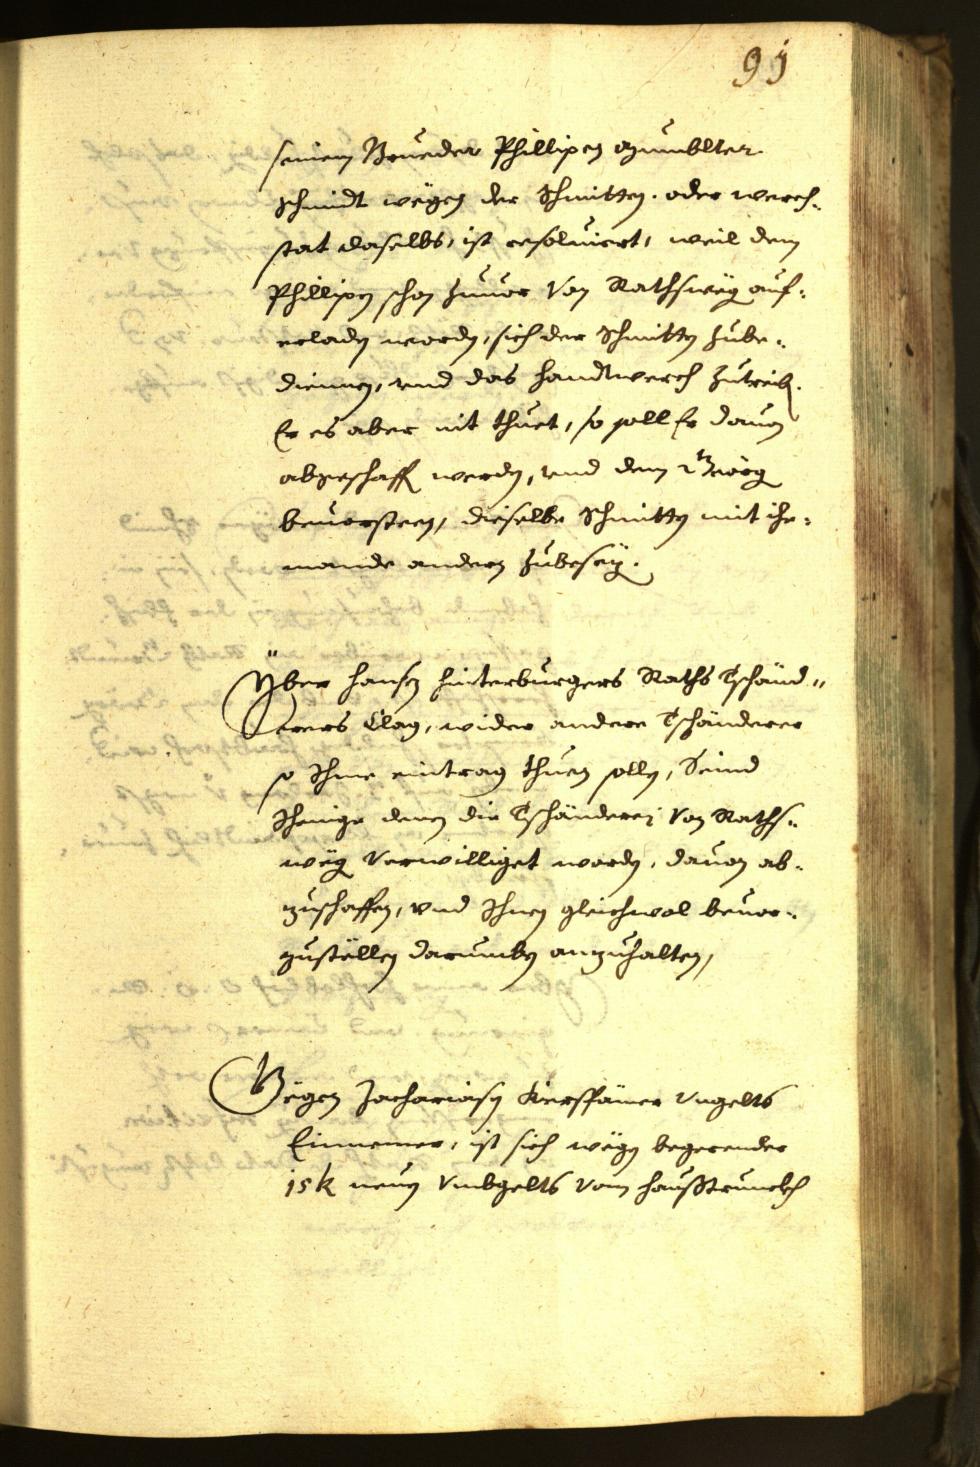 91
seinem Brueder Phillipen Gumblter
Schmidt wegen der Schmitten. oder werch-
stat daselbs, ist resoluiert, weil dem
Phillipen schon zuuor von Rathsweg auf-
erladen worden, sich der Schmitten zube-
diennen, vnd das handtwerch zutreib.
Er es aber nit thuet, so soll Er dauon
abgeschafft werden, vnd dem
beuorsteen, dieselbe Schmitten mit ihe-
mande andern zubesezen.
Yber Hansen Hinterburgers Raths Tschänd-
terers Clag, wider andere Tschänderer
so Ihme eintrag thuen sollen, Seind
Ihenige denen die Tschänderej von Raths-
weg verwilliget worden, dauon ab-
zuschaffen, vnd Ihnen gleichwol beuor-
zuställen darumben anzuhalten,
Wegen Zachariasen Kierspämer Vngelts
Einnemer, ist sich wegen begerender
15 k neuen Vmbgelts vom haustrunckh